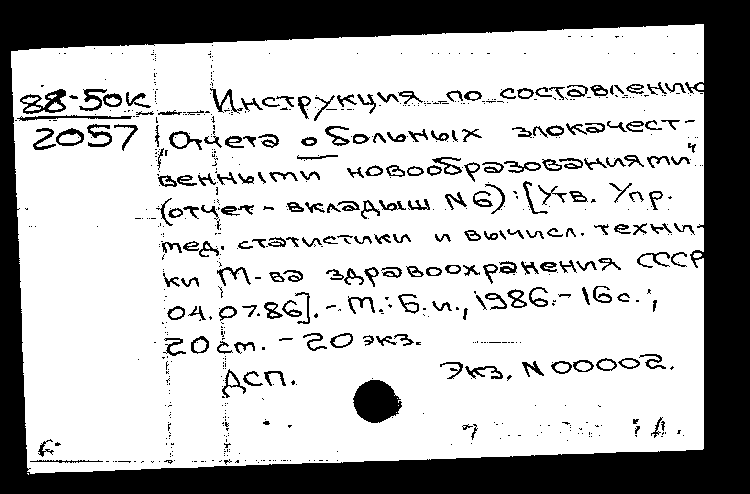 88-50к Инструкция по составлению
2057 "Отчета о больных злокачест-
венными новообразованиями"
(отчет-вкладыш N 6) : [Утв. Упр.
мед. статистики и вычисл. техни-
ки М-ва здравоохранения СССР
04.07.86]. - М.: Б.и., 1986. - 16 с.;
20 см. - 20 экз.
ДСП. Экз. N 00002.
б